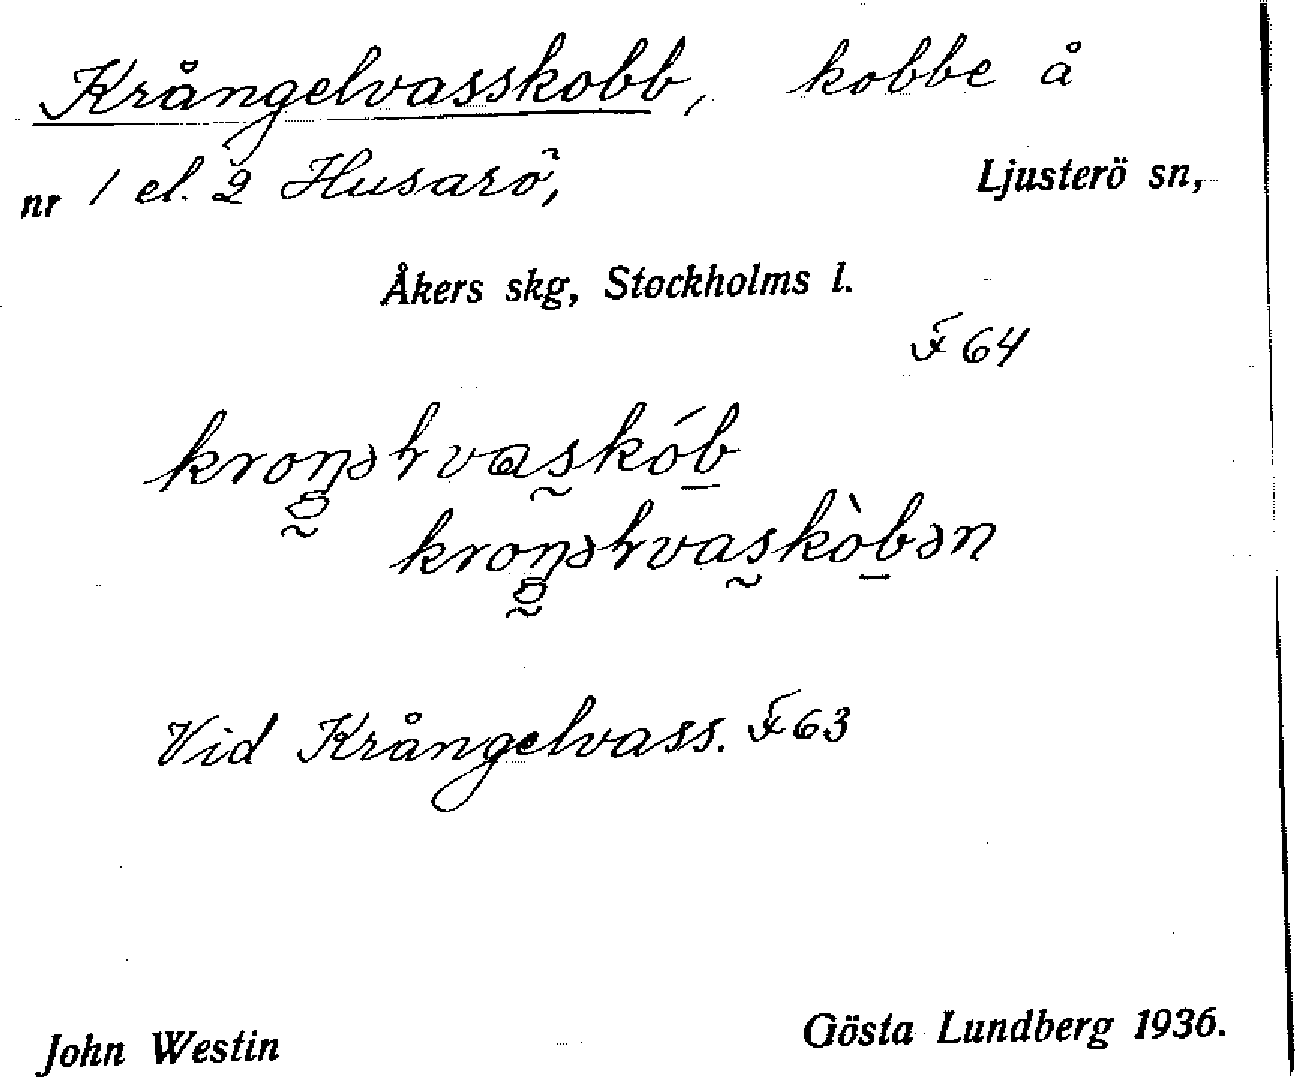 Krångelvasskobb, kobbe å
nr 1 el. 2 Husarö, Ljusterö sn,
Åkers skg, Stockholms l.
F 64
kroŋəɫvaskób
kroŋəɫvaskòbən
Vid Krångelvass. F 63
John Westin Gösta Lundberg 1936.